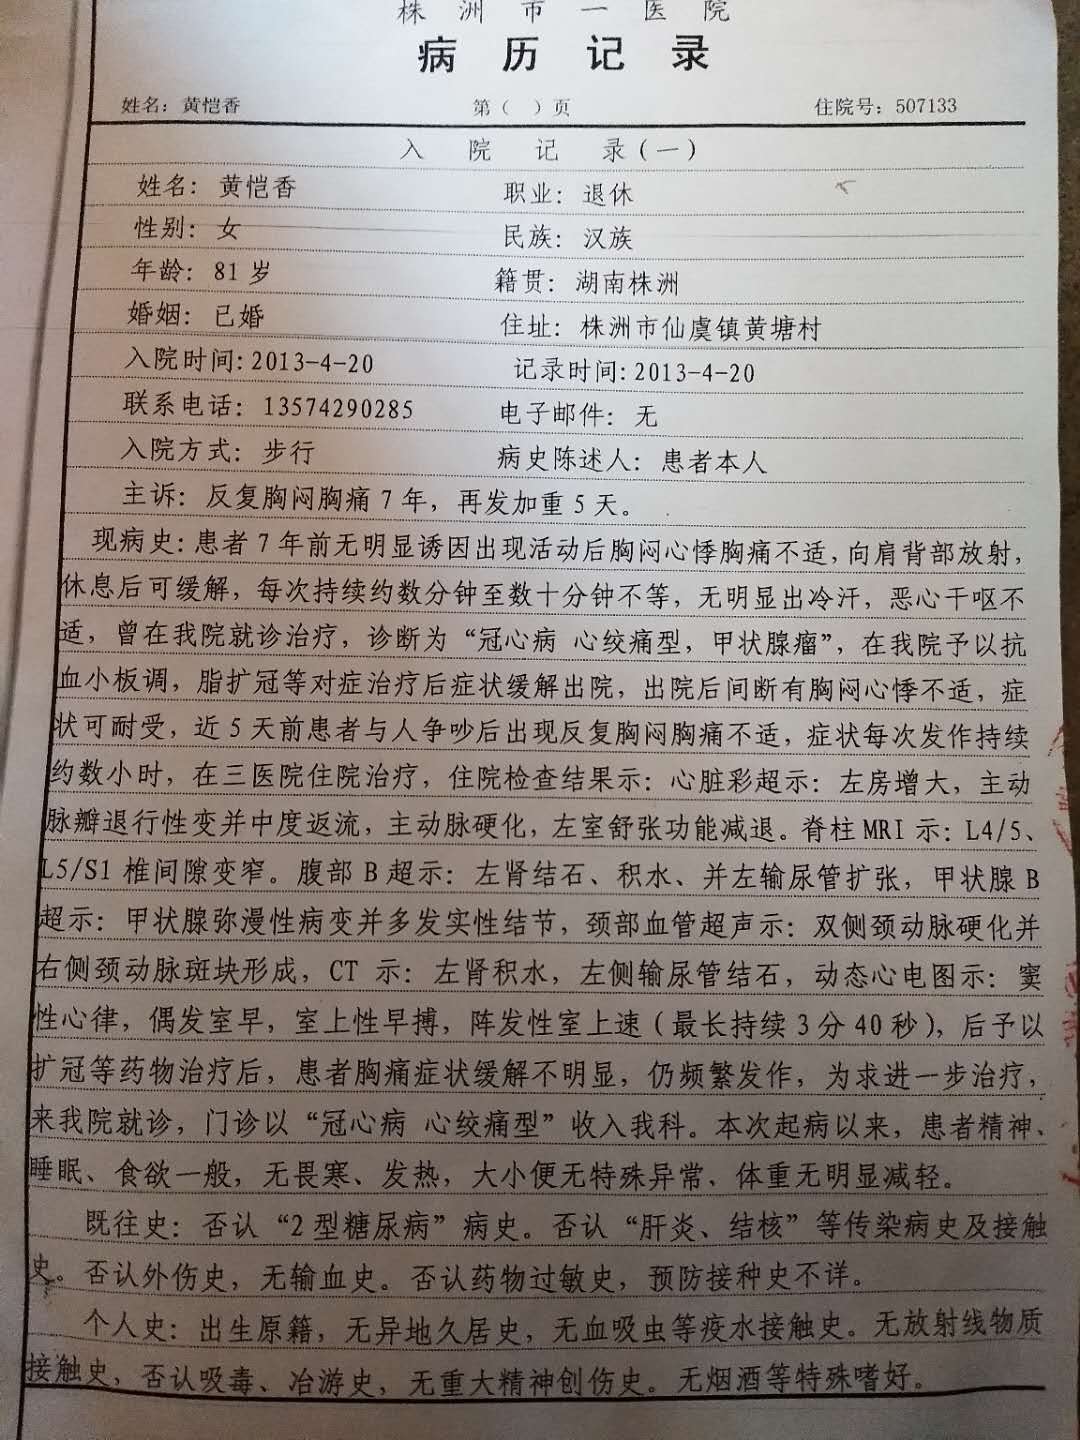 株洲市一医院
病历记录
姓名：黄恺香 第（ ）页 住院号：507133
入院记录（一）
姓名：黄恺香 职业：退休
性别：女 民族：汉族
年龄：81岁 籍贯：湖南株洲
婚姻：已婚 住址：株洲市仙虞镇黄塘村
入院时间：2013-4-20 记录时间：2013-4-20
联系电话：13574290285 电子邮件：无
入院方式：步行 病史陈述人：患者本人
主诉：反复胸闷胸痛7年，再发加重5天。
现病史：患者7年前无明显诱因出现活动后胸闷心悸胸痛不适，向肩背部放射，
休息后可缓解，每次持续约数分钟至数十分钟不等，无明显出冷汗，恶心干呕不
适，曾在我院就诊治疗，诊断为“冠心病 心绞痛型，甲状腺瘤”，在我院予以抗
血小板调，脂扩冠等对症治疗后症状缓解出院，出院后间断有胸闷心悸不适，症
状可耐受，近5天前患者与人争吵后出现反复胸闷胸痛不适，症状每次发作持续
约数小时，在三医院住院治疗，住院检查结果示：心脏彩超示：左房增大，主动
脉瓣退行性变并中度返流，主动脉硬化，左室舒张功能减退。脊柱MRI示：L4/5、
L5/S1椎间隙变窄。腹部B超示：左肾结石、积水、并左输尿管扩张，甲状腺B
超示：甲状腺弥漫性病变并多发实性结节，颈部血管超声示：双侧颈动脉硬化并
右侧颈动脉斑块形成，CT 示：左肾积水，左侧输尿管结石，动态心电图示：窦
性心律，偶发室早，室上性早搏，阵发性室上速（最长持续3分40秒），后予以
扩冠等药物治疗后，患者胸痛症状缓解不明显，仍频繁发作，为求进一步治疗，
来我院就诊，门诊以“冠心病 心绞痛型”收入我科。本次起病以来，患者精神、
睡眠、食欲一般，无畏寒、发热，大小便无特殊异常、体重无明显减轻。
既往史：否认“2型糖尿病”病史。否认“肝炎、结核”等传染病史及接触
史。否认外伤史，无输血史。否认药物过敏史，预防接种史不详。
个人史：出生原籍，无异地久居史，无血吸虫等疫水接触史。无放射线物质
接触史，否认吸毒、冶游史，无重大精神创伤史。无烟酒等特殊嗜好。